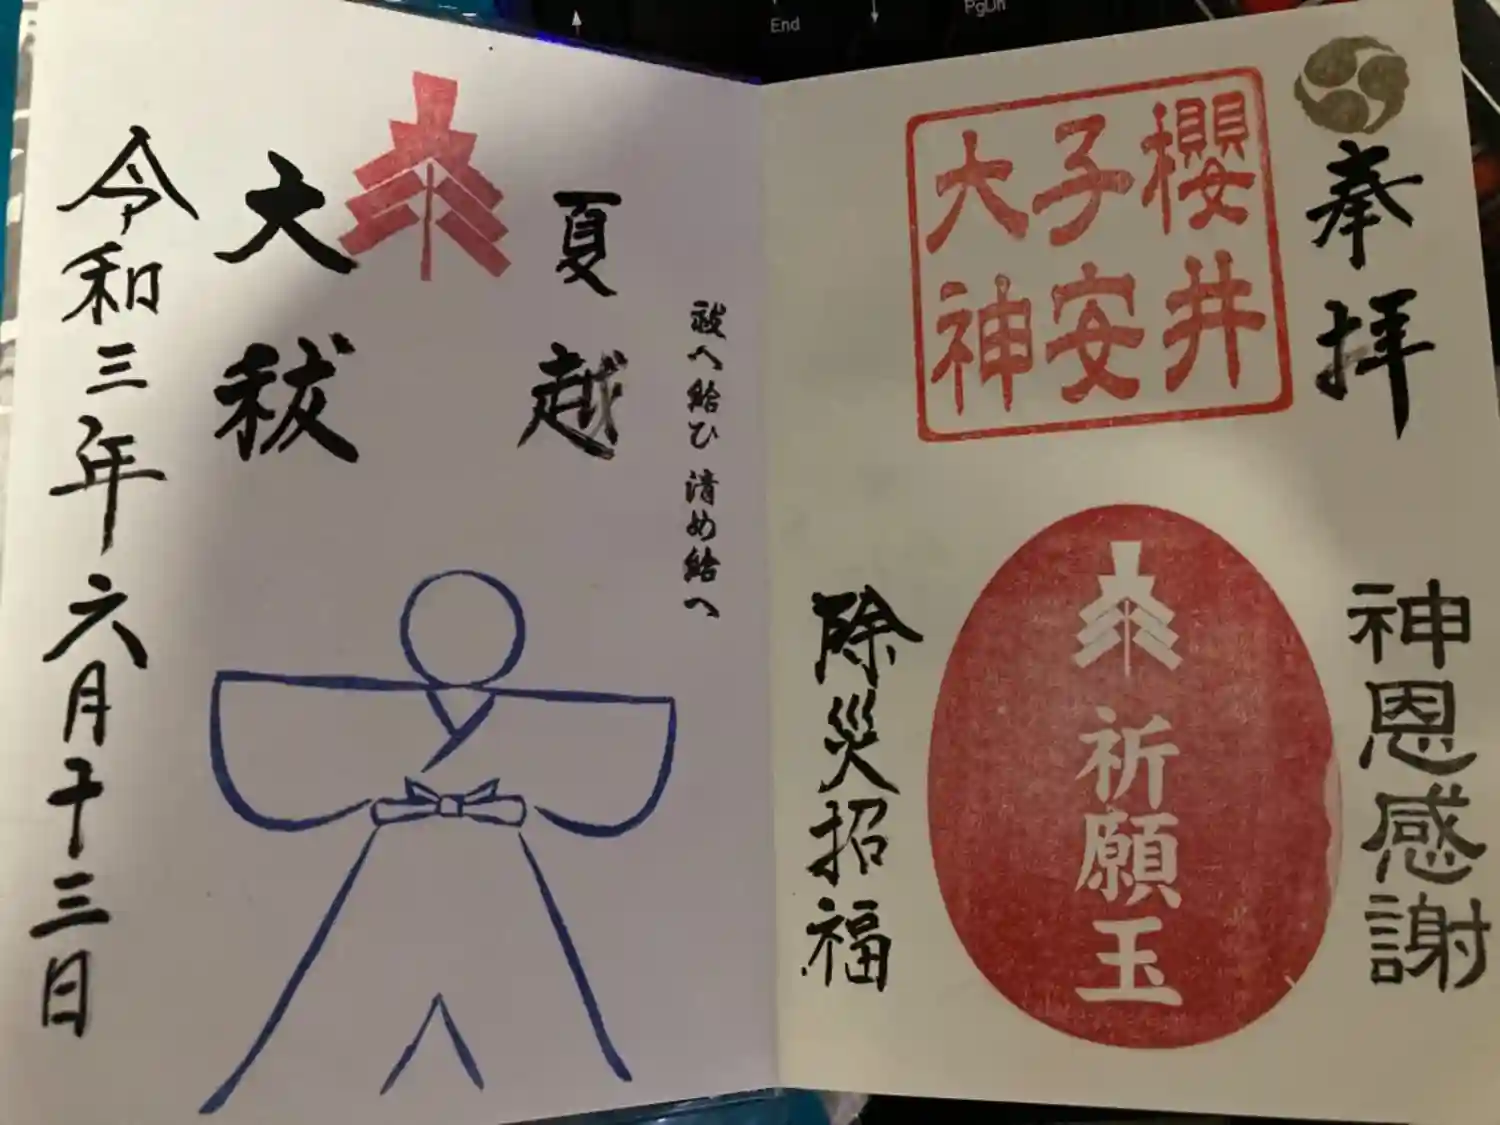 End
PgDn
奉拝
櫻井
子安
大神
神恩感謝
祈願玉
除災招福
夏越
祓へ給ひ 清め給へ
大祓
令和三年六月十三日